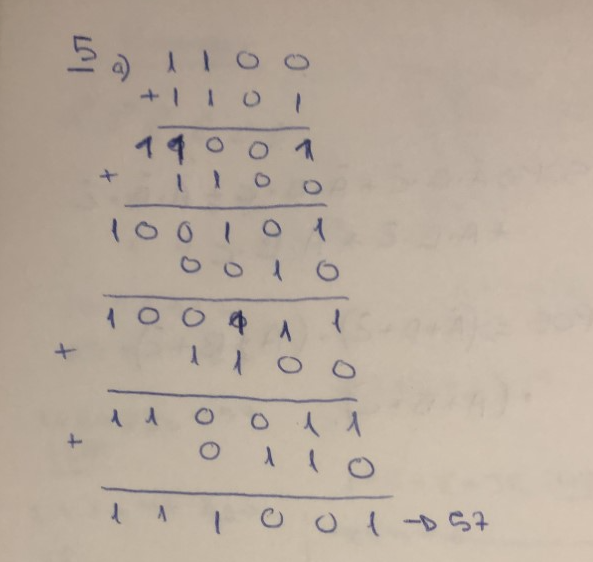 5 a) 1 1 0 0
+ 1 1 0 1
1 1 0 0 1
+ 1 1 0 0
1 0 0 1 0 1
0 0 1 0
1 0 0 1 1 1
+ 1 1 0 0
1 1 0 0 1 1
+ 0 1 1 0
1 1 1 0 0 1 → 57